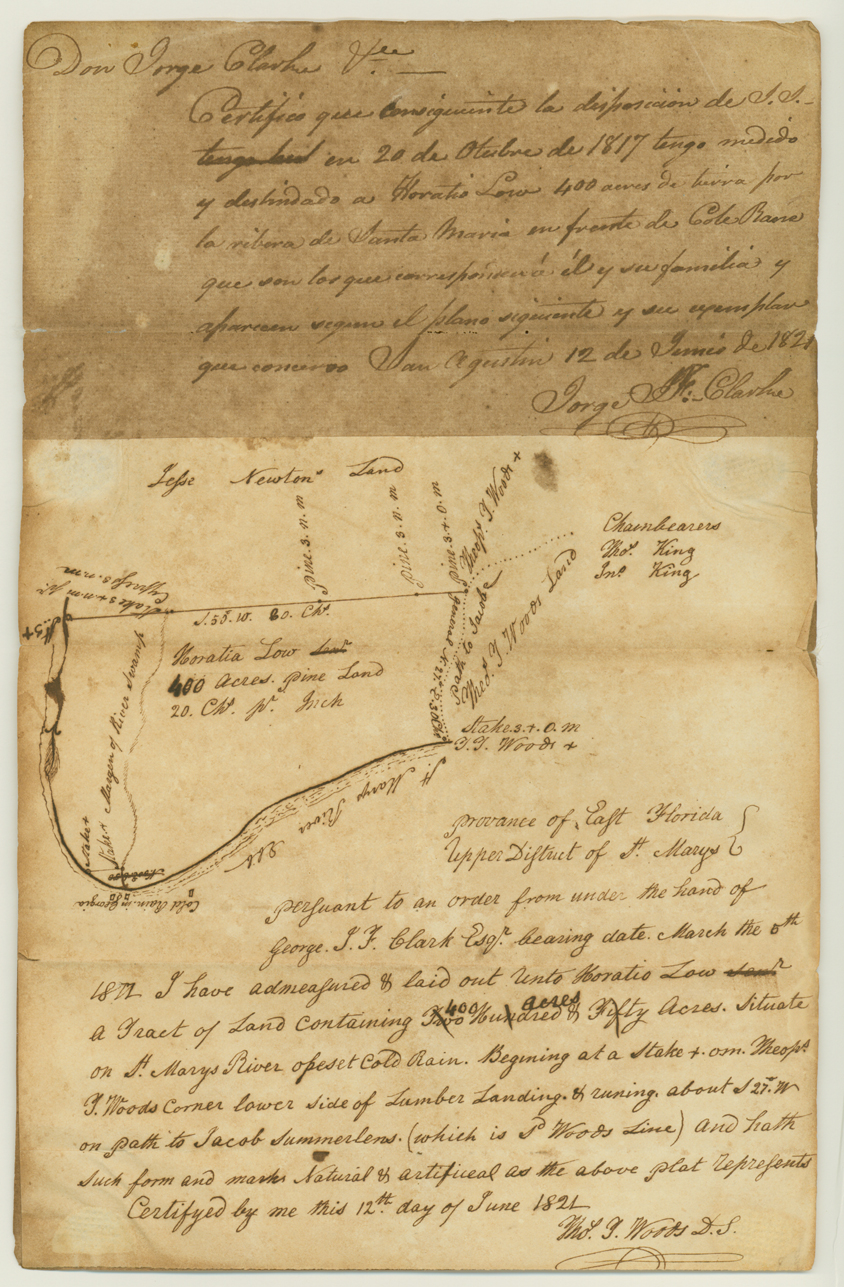 Don Jorge Clarke &ce
Certifico que consiguiente la disposicion de S.S.
en 20 de Otubre de 1817 tengo medido
y deslindado a Horatio Low 400 acres de tierra por
la ribera de Santa Maria en frente de Cole Raine
que son los que corresponden á él y su familia y
aparecen segun el plano siguiente y su exemplar
que concervo San Agustin 12 de Junio de 1821
Jorge J. F. Clarke
Jesse Newtons Land
Pine. 3. n. m
Pine. 3. n. m
Pine. 3 + 0. m
Theops. T. Woods +
Chainbearers
Thos. King
Jno. King
Cypress 3. n. m
S. 50. W. 80. Chs.
Horatia Low
400 Acres. Pine Land
20. Chs. pr. Inch
Margen of River Swamp
Path to Jacob
Theos. T. Woods Land
Stake. 3. + 0. m
T. T. Woods +
St. Marys River
Stake +
Stake +
Cold Rain. in Georgia
Provance of East Florida
Upper District of St. Marys
Persuant to an order from under the hand of
George. J. F. Clark Esqr. bearing date. March the 5th
1821 I have admeasured & laid out Unto Horatio Low
400 acres
a Tract of Land Containing Two Hundred & Fifty Acres. Situate
on St. Marys River opeset Cold Rain. Begining at a Stake +. om. Theops.
T. Woods Corner lower side of Lumber Landing. & runing. about S 27. W
on path to Jacob Summerlens. (which is Sd Woods Line) and hath
such form and marks Natural & artificeal as the above plat represents
Certifyed by me this 12th. day of June 1821
Thos. T. Woods D. S.